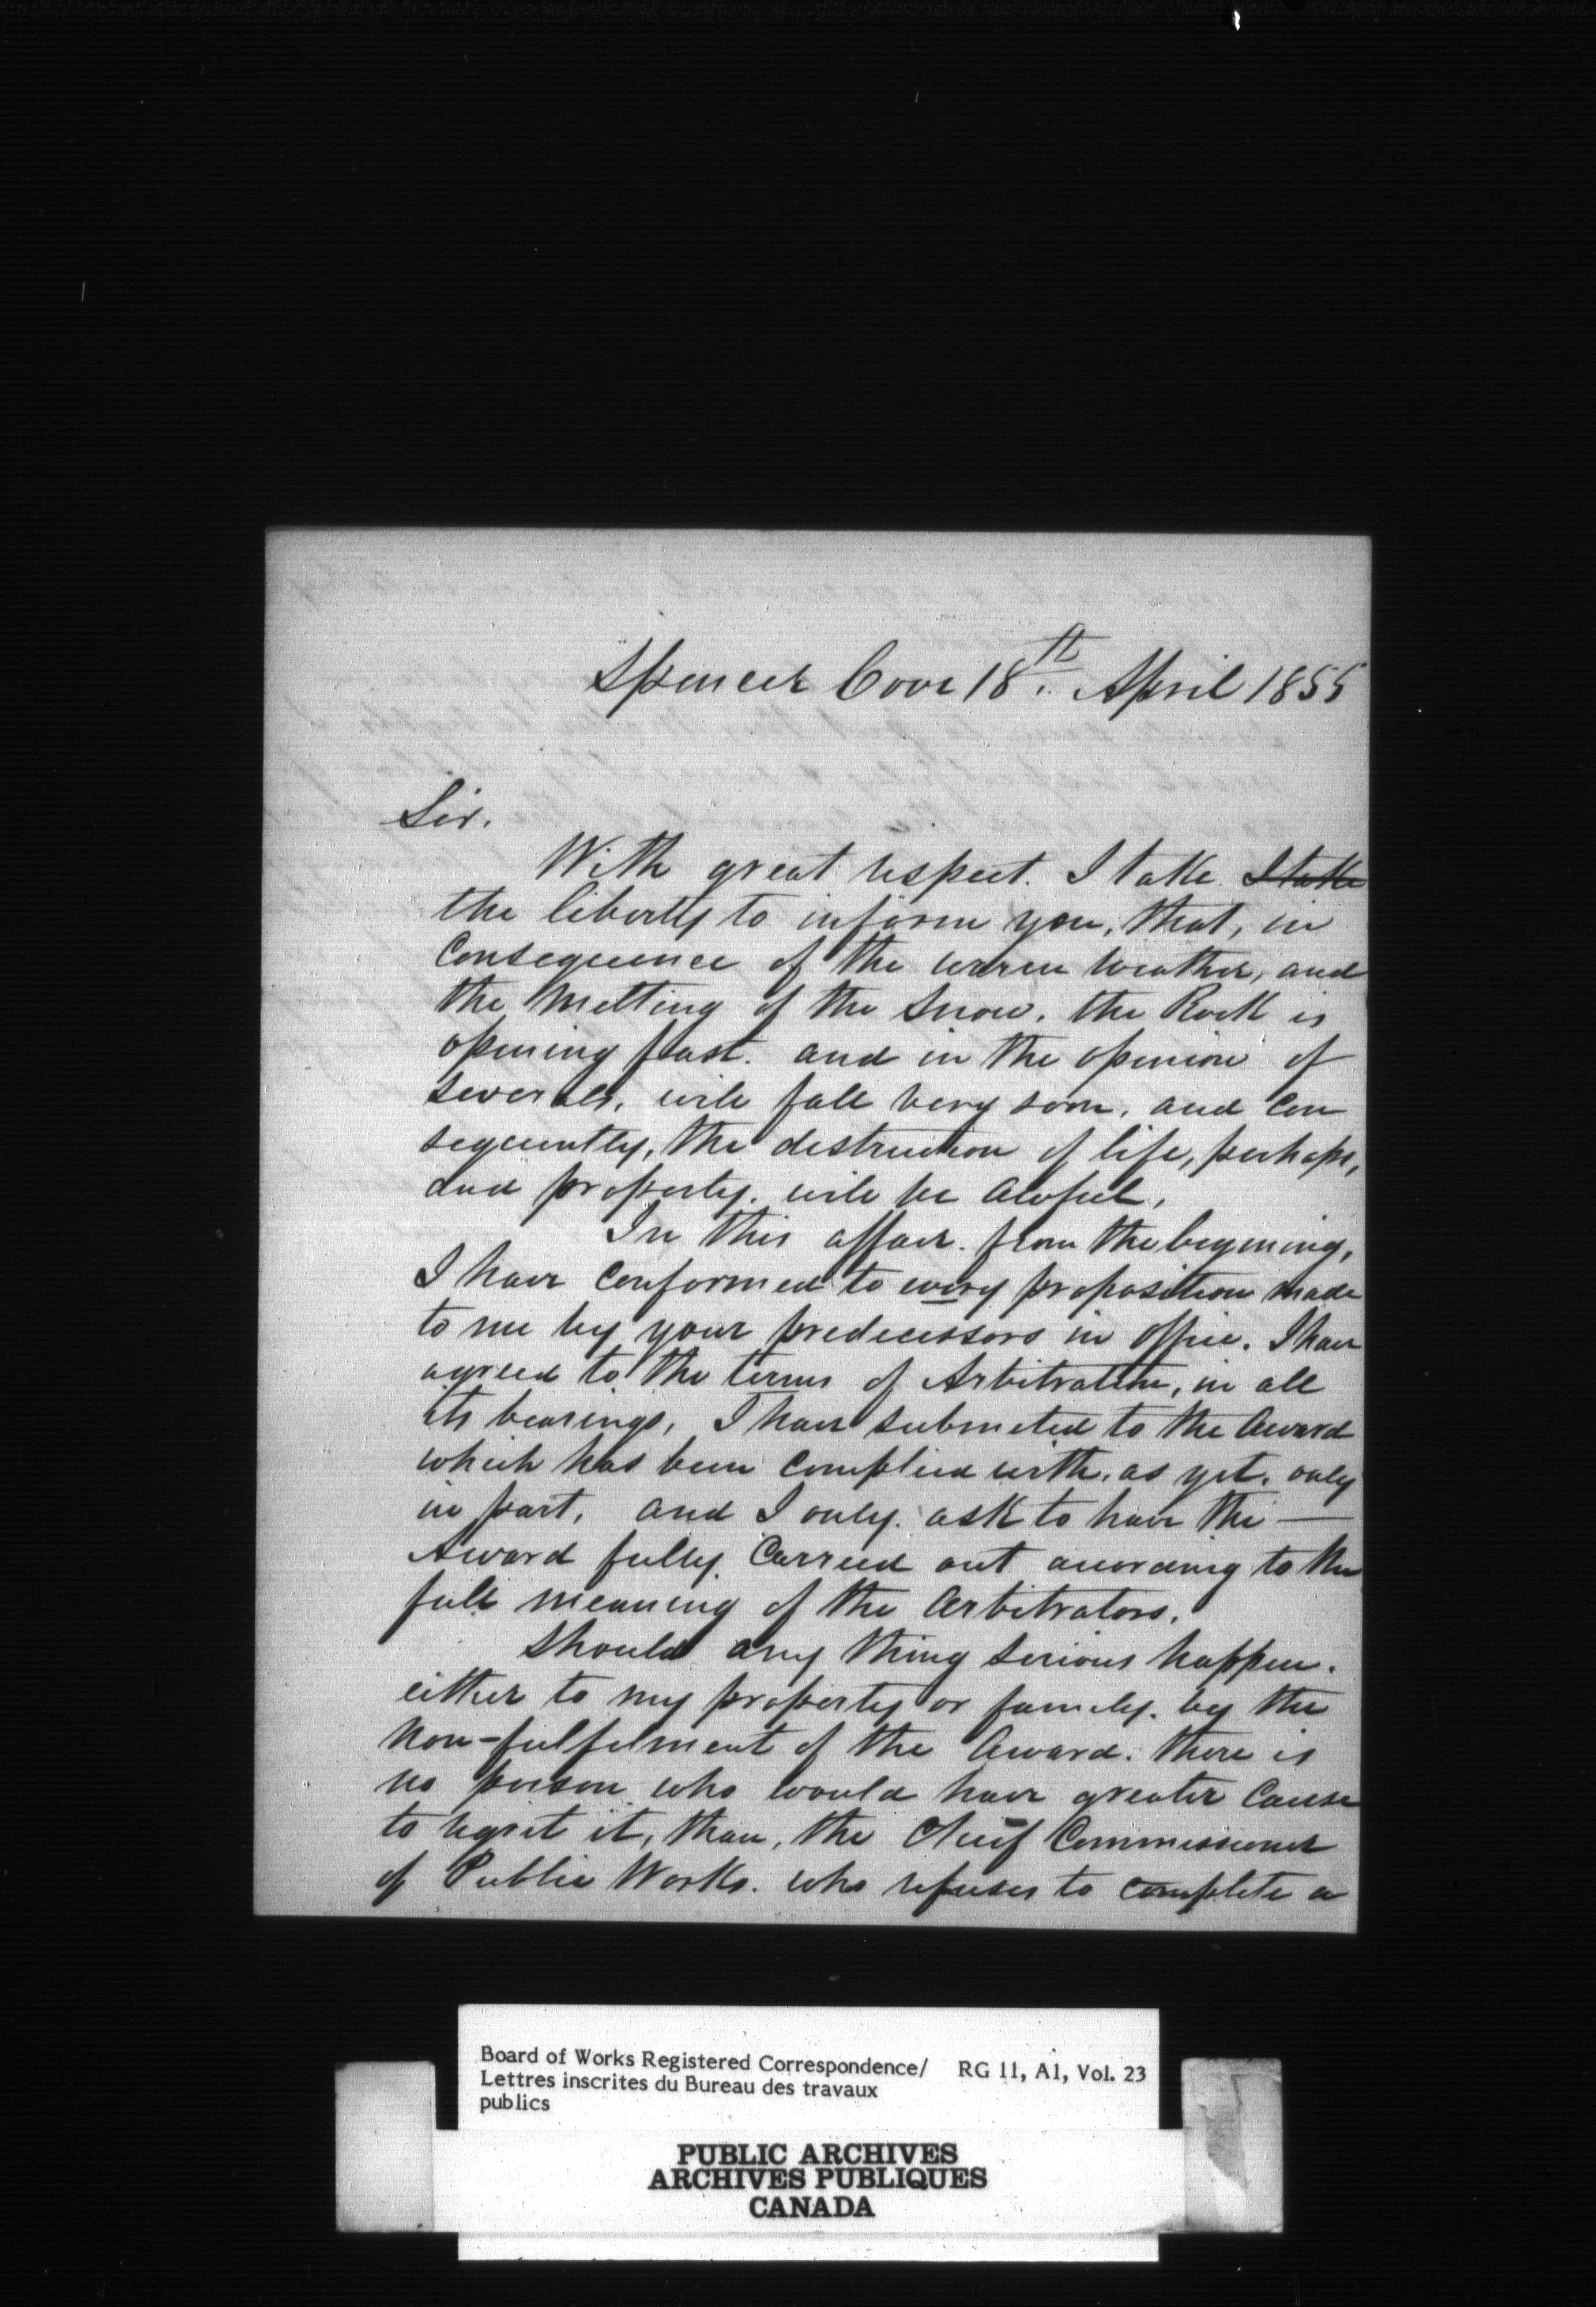 Spencer Cove 18th. April 1855
Sir.
With great respect. I take I take
the liberty to inform you, that, in
Consequence of the warm weather, and
the Melting of the Snow. the Rock is
opening fast. and in the opinion of
severals, will fall very soon, and Con
sequently, the destruction of life, perhaps,
and property. will be Awful.
In this affair. from the begining,
I have Conformed to every proposition made
to me by your predecessors in office. I have
agreed to the terms of Arbitration, in all
its bearings, I have submeted to the Award
which has been Complied with, as yet. only
in part, and I only. ask to have the —
Award fully. Carried out according to the
full meaning of the Arbitrators.
Should any thing serious happen.
either to my property or family. by the
Non-fulfilment of the Award. there is
no person who would have greater Cause
to regret it, than, the Chief Commissioner
of Public Works. who refuses to complete a
Board of Works Registered Correspondence/ RG 11, A1, Vol. 23
Lettres inscrites du Bureau des travaux
publics
PUBLIC ARCHIVES
ARCHIVES PUBLIQUES
CANADA